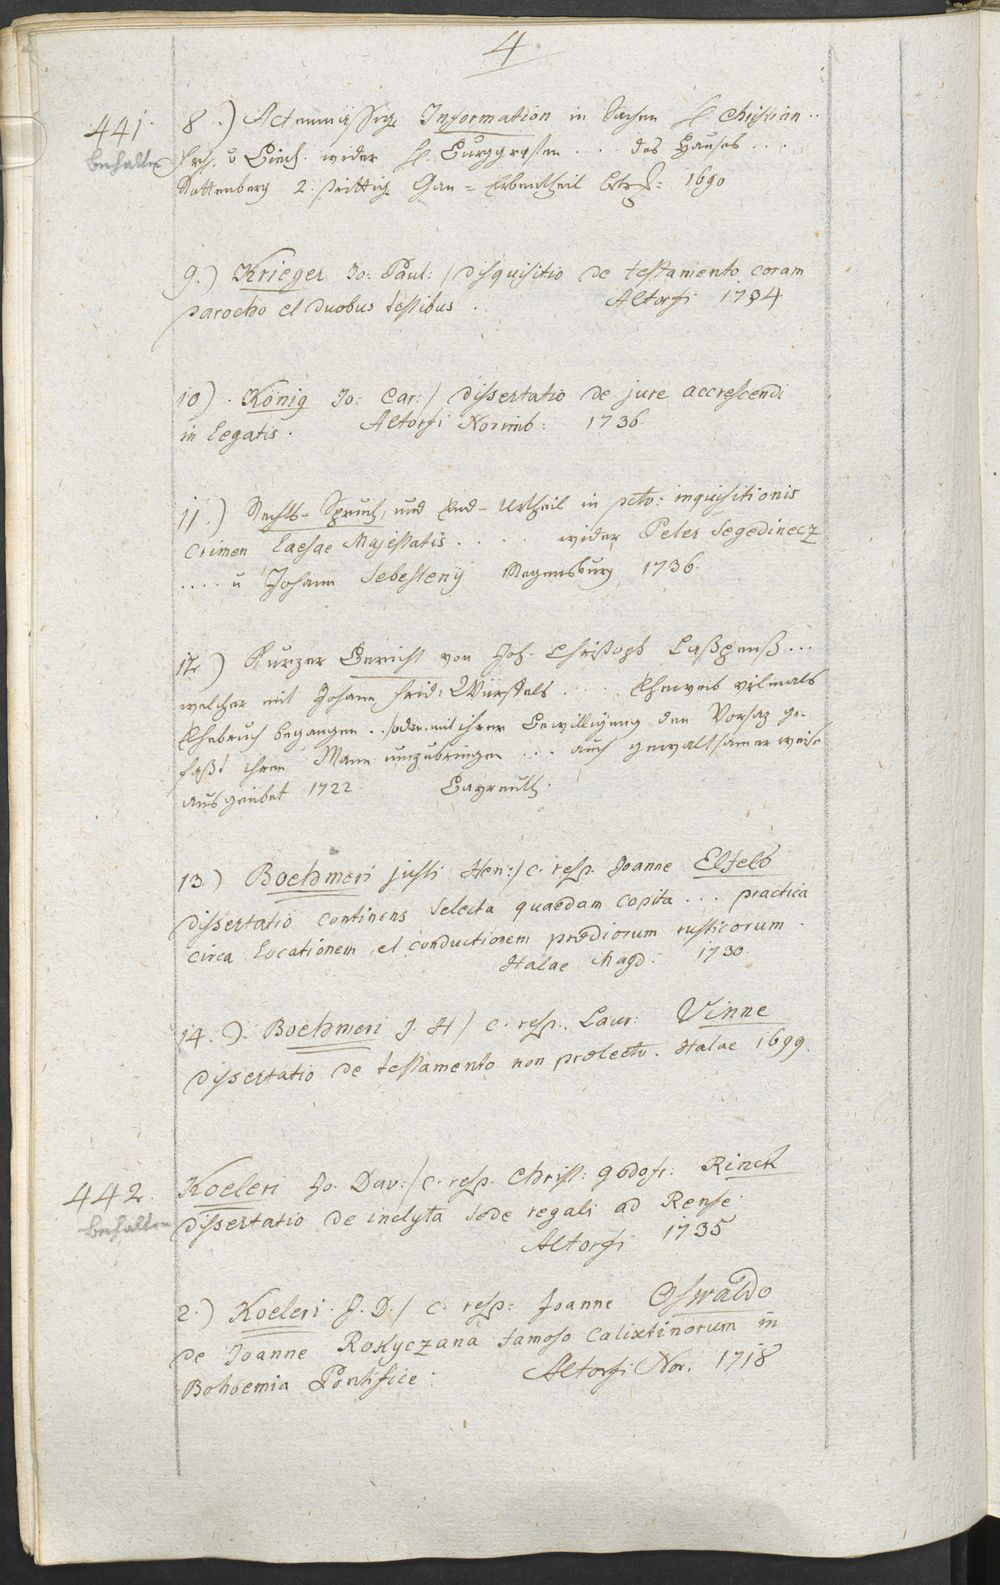 4
441. 8.) Actenmässige Information in Sachen H. Christian..
behalten Frh. v Giech. wider H. Burggrafen ... des Hauses ...
Rottenberg 2. strittig Gan=Erbentheil betr: 1690
9.) Krieger Jo: Paul:/ disquisitio de testamento coram
parocho et duobus testibus. Altorfi 1734
10). König Jo: Car:/ dissertatio de jure accrescendi
in legatis. Altorfi Norimb: 1736
11.) Rechts-Spruch, und End-Urtheil in pcto: inquisitionis
Crimen laesae Majestatis ..... wider Peter Segedinecz
.... u Johann Sebesteny Regensburg 1736.
12) Kurzer Bericht von Joh. Christoph ...
welcher mit Johann Frid: Würstels .... Eheweib vilmals
Ehebruch begangen .. mit ihrer Bewilligung den Vorsaz ge-
faßt ihren Mann umzubringen ... auch gewaltsamer weise
ausgeübet 1722 Bayreuth.
13.) Boehmeri justi Hen:/ c. resp. Joanne Elfeld
dissertatio continens selecta quaedam capita ... practica
circa locationem et conductionem prædiorum rusticorum.
Halae Magd: 1730.
14.). Boehmeri J. H/ c. resp. Laur: Vinne
dissertatio de testamento non prolecto. Halae 1699.
442. Koeleri Jo. Dav:/ c. resp. Christ: godofr: Rinck
behalten dissertatio de inclyta sede regali ad Rense.
Altorfi 1735
2.) Koeleri. J. D./ c. resp: Joanne Oswaldo
de Joanne Rokyczana famoso Calixtinorum in
Bohoemia Pontifice. Altorfi Nor. 1718